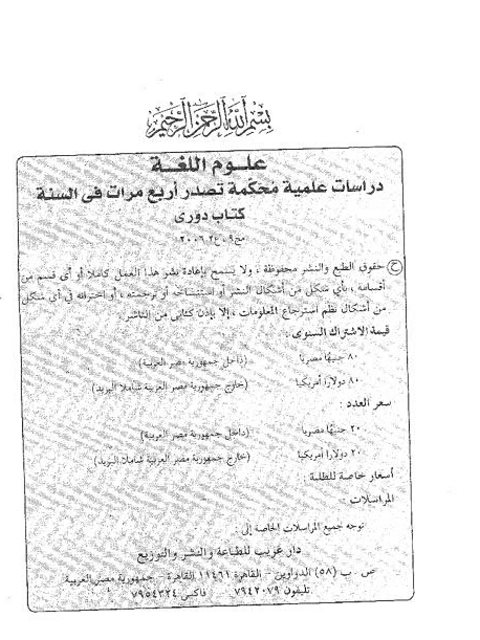 بسم الله الرحمن الرحيم
علوم اللغة
دراسات علمية محكمة تصدر أربع مرات فى السنة
كتاب دورى
مج٩، ع٢ ٢٠٠٦
ⓒ حقوق الطبع والنشر محفوظة ، ولا يسمح بإعادة نشر هذا العمل كاملا أو أى قسم من
أقسامه ، بأي شكل من أشكال النشر أو استنساخه أو ترجمته ، أو اختزانه في أى شكل
من أشكال نظم استرجاع المعلومات ، إلا بإذن كتابى من الناشر.
قيمة الاشتراك السنوى :
٨٠ جنيهًا مصريا (داخل جمهورية مصر العربية)
٨٠ دولارا أمريكيا (خارج جمهورية مصر العربية شاملا البريد)
سعر العدد :
٢٠ جنيهًا مصريا (داخل جمهورية مصر العربية)
٢٠ دولارا أمريكيا (خارج جمهورية مصر العربية شاملا البريد)
أسعار خاصة للطلبة :
المراسلات :
توجه جميع المراسلات الخاصة إلى :
دار غريب للطباعة والنشر والتوزيع
ص . ب (٥٨) الدواوين - القاهرة ١١٤٦١ القاهرة - جمهورية مصر العربية
تليفون ٧٩٤٢٠٧٩ فاكس ٧٩٥٤٣٢٤